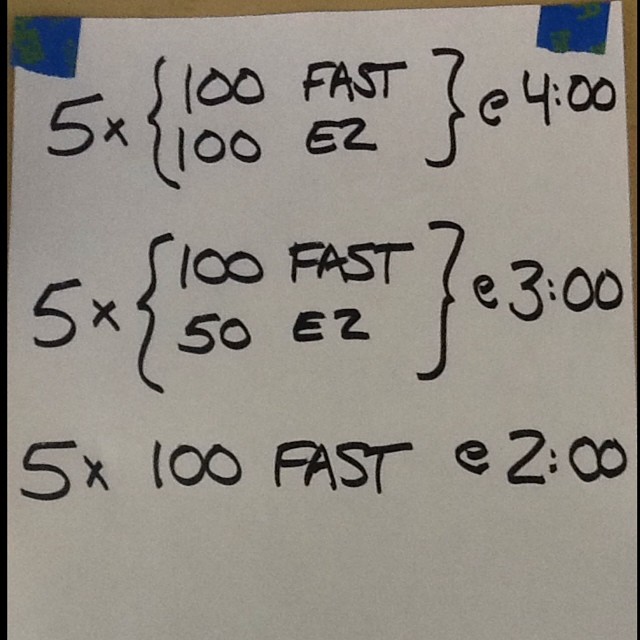 5x { 100 FAST } @ 4:00
100 EZ
5x { 100 FAST } @ 3:00
50 EZ
5x 100 FAST @ 2:00